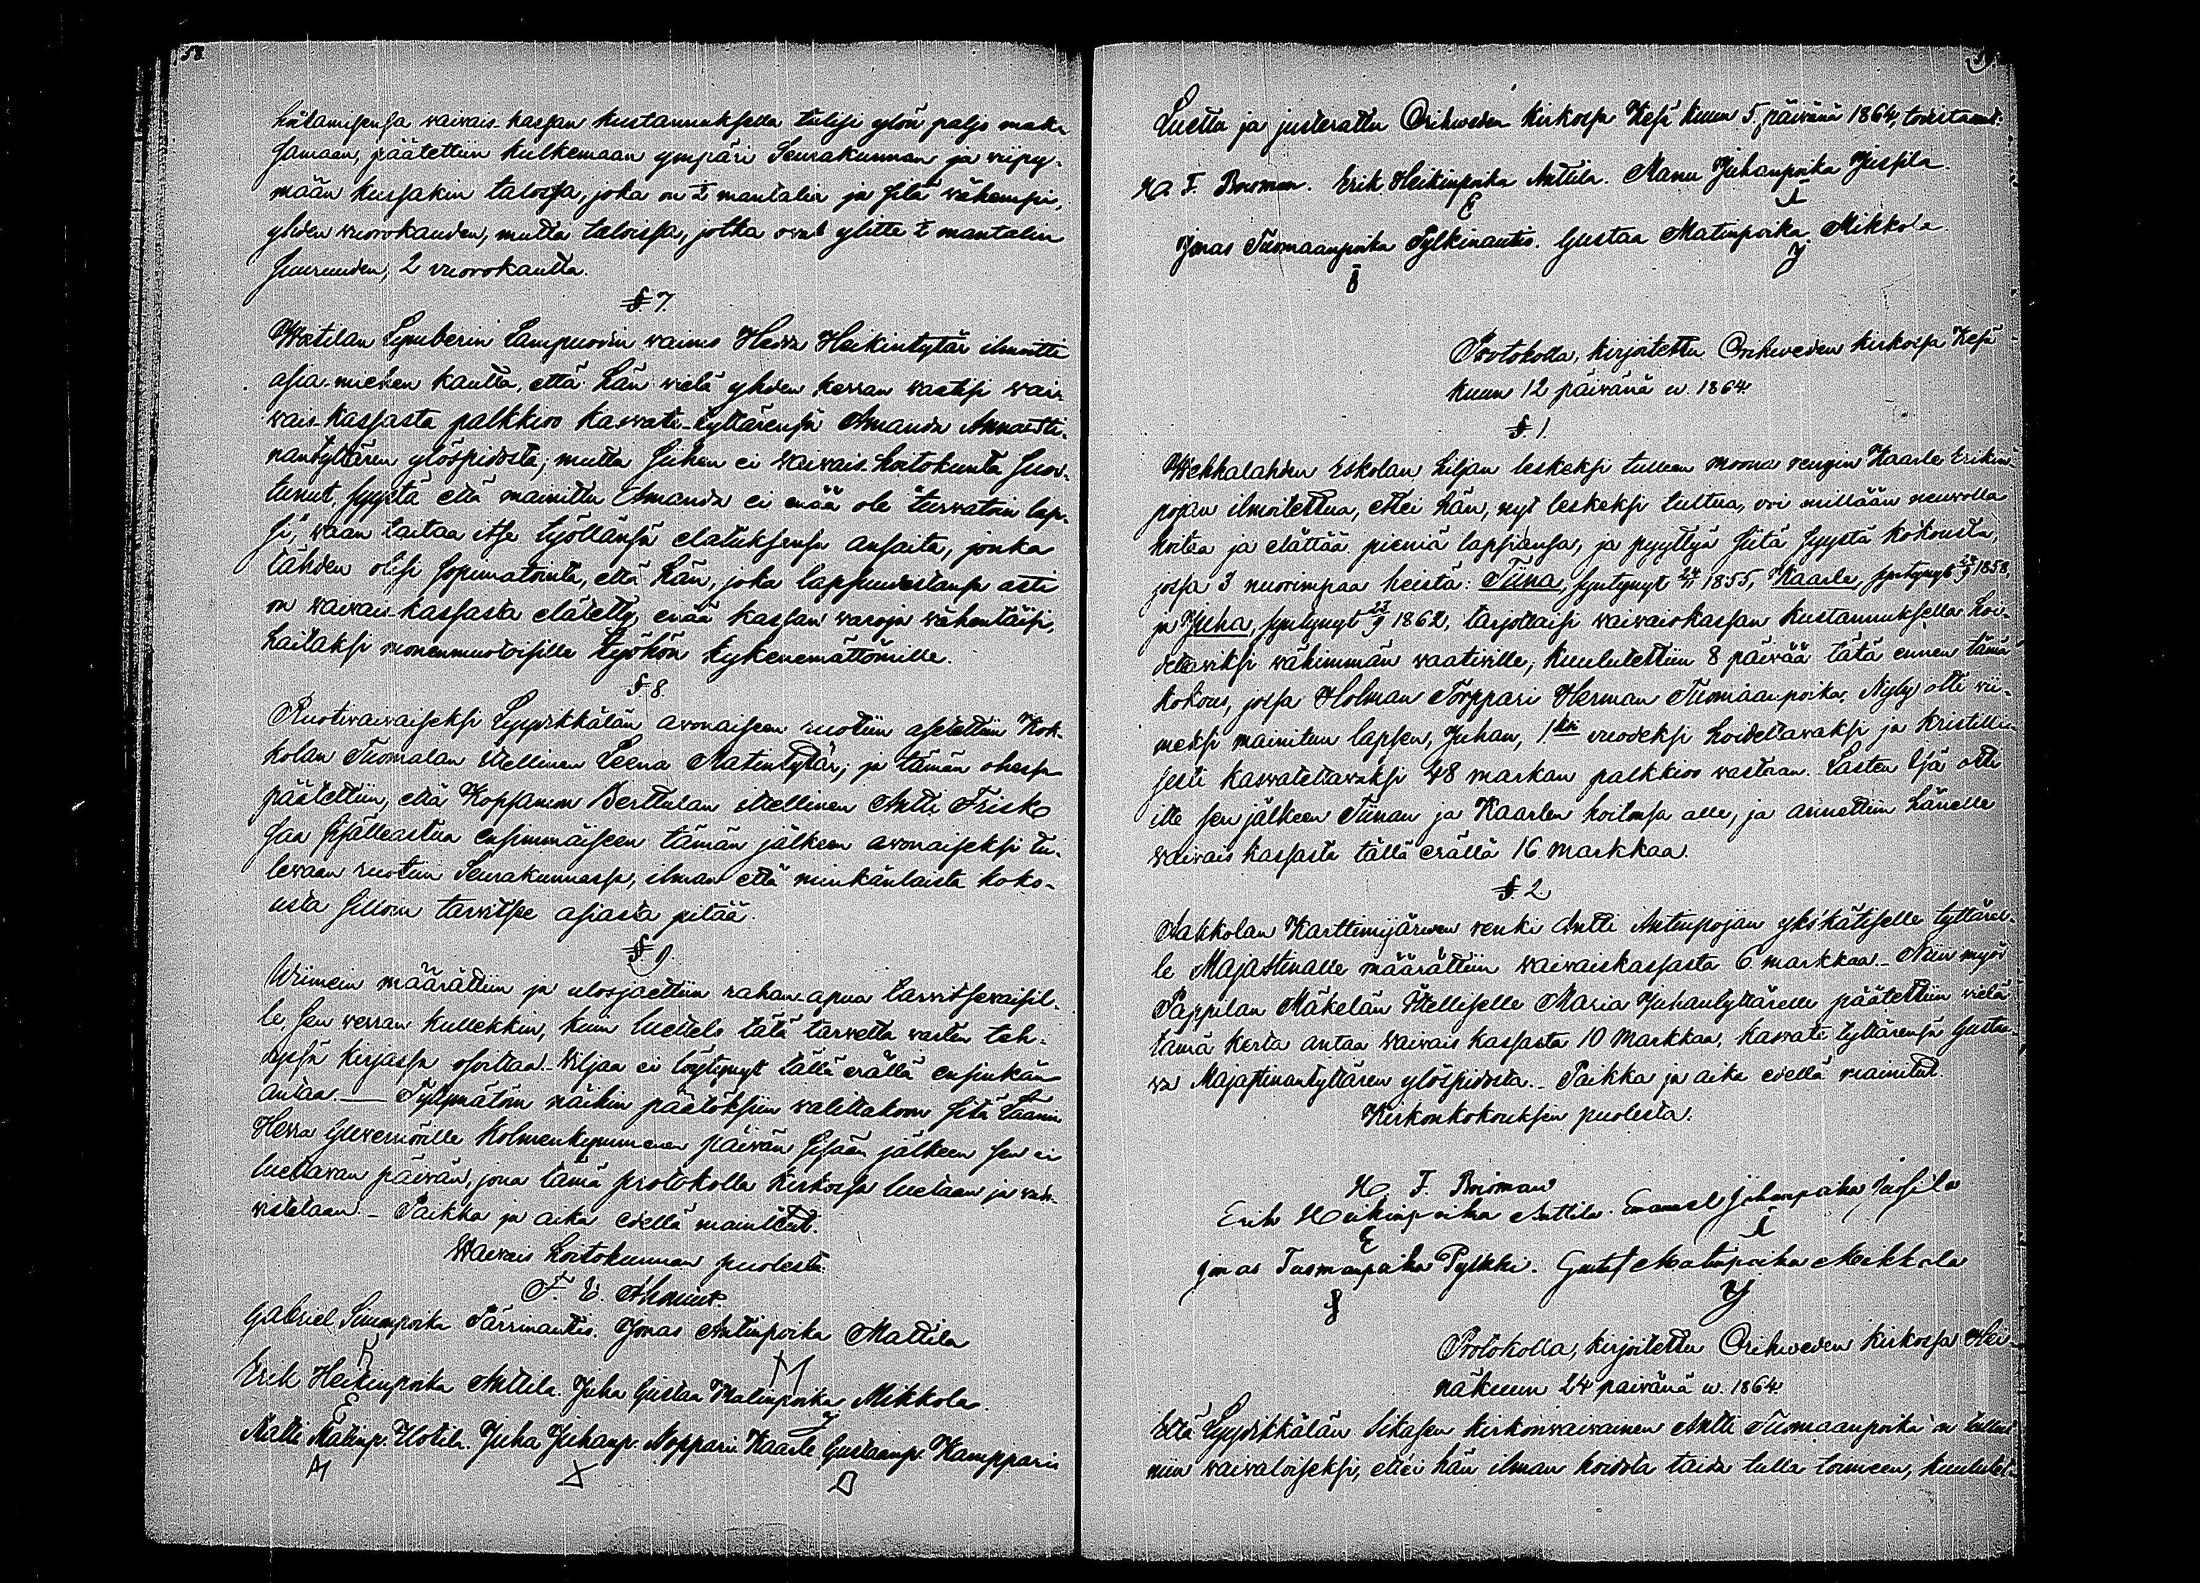 58
hätämisensä vaivais-kassan kustannuksella tulisi ylön paljo mak-
samaan, päätettiin kulkemaan ympäri Seurakunnan ja viipy-
mään kussakin talossa, joka on ½ mantalia ja sitä vähempi,
yhden vuorokauden, mutta taloissa, jotka ovat ylitte ½ mantalin
suuruuden, 2 vuorokautta.
§ 7.
Watilan Lampuodin vaimo Hedda Heikintytär ilmoitti
asia-miehen kautta, että hän vielä yhden kerran vaatisi vai-
vais-kassasta palkkioo kasvate-tyttärensä Amanda Annasti-
nantyttären ylöspidosta; mutta siihen ei vaivais-hoitokunta suos-
tunut, syystä että mainittu Amanda ei enää ole turvatoin lap-
si, vaan taitaa itse työllänsä elatuksensa ansaita, jonka
tähden olisi sopimatointa, että hän, joka lapsuudestansa asti
on vaivais-kassasta elätetty, enää kassan varoja vähentäisi,
haitaksi monenmuotoisille työhön kykenemättömille.
§ 8.
Ruotivaivaiseksi Lyydikkälän avonaiseen ruotiin asetettiin Kok-
kolan Tuomalan itellinen Leena Matintytär; ja tämän ohessa
päätettiin, että Kopsamon Berttulan itellinen Antti Frisk
saa sisälleastua ensimmäiseen tämän jälkeen avonaiseksi tu-
levaan ruotiin Seurakunnassa, ilman että minkänlaista koko-
usta silloin tarvitsee asiasta pitää.
§ 9.
Wiimein määrättiin ja ulosjaettiin rahan-apua tarvitsevaisil-
le, sen verran kullekkin, kuin luettelo tätä tarvetta varten teh-
dyssä kirjassa osoittaa. Viljaa ei löytynyt tällä erällä ensinkän
antaa. — Tytymätöin näihin päätöksiin valittakoon sitä Läänin
Herra Guvernörille kolmenkymmenen päivän sisään jälkeen sen ei
luettavan päivän, jona tämä protokolla kirkossa luetaan ja vah-
vistetaan. — Paikka ja aika edellä mainitut.
Waivais hoitokunnan puolesta:
Gabriel Simonpoika Pärrinantti. Jonas Antinpoika Mattila
Erik Heikinpoika Anttila. Juha Gustaa Matinpoika Mikkola.
Matti Matinp. Uotila. Juha Juhanp. Noppari Kaarle Gustaanp. Kamppari
Luettu ja justerattu Oriheden kirkossa Kesä kuun 5 päivänä 1864, todistavat:
H. F. Broman. Erik Heikinpoika Anttila. Manu Juhanpoika Jussila.
Jonas Tuomaanpoika Pylkinantti. Gustaa Matinpoika Mikkola.
Protokolla, kirjoitettu Oriheden kirkossa Kesä
kuun 12 päivänä v. 1864.
§ 1.
Wehkalahden Eskolan, hiljan leskeksi tulleen moona rengin Kaarle Erikin-
pojan ilmoitettua, ettei hän, nyt leskeksi tultua, voi millään neuvolla
hoitaa ja elättää pieniä lapsiansa, ja pyyttyä siitä syystä kokousta,
jossa 3 nuorimpaa heistä: Tiina, syntynyt 1855, Kaarle, syntynyt 1858,
ja Juha, syntynyt 1862, tarjottaisi vaivaiskassan kustannuksella hoi-
dettaviksi vähimmän vaativille, kuulutettiin 8 päivää tätä ennen tämä
kokous, jossa Holman Torppari Herman Tuomaanpoika Nyby otti vii-
meksi mainitun lapsen, Juhan, 1ksi vuodeksi hoidettavaksi ja kristilli-
sesti kasvatettavaksi 48 markan palkkioo vastaan. Lasten Isä otti
itte sen jälkeen Tiinan ja Kaarlen hoitonsa alle, ja annettiin hänelle
vaivais kassasta tällä erällä 16 markkaa.
§ 2.
Pakkolan Karttimijärven renki Antti Antinpojan yks'kätiselle tyttärel-
le Majastinalle määrättiin vaivaiskassasta 6 markkaa. — Niin myös
Pappilan Mäkelän Itelliselle Maria Juhantyttärelle päätettiin vielä
tämä kerta antaa vaivais kassasta 10 markkaa, kasvate tyttärensä Gusta-
va Majastinantyttären ylöspidosta. — Paikka ja aika edellä mainitut.
Kirkonkokouksen puolesta:
H. F. Broman
Erik Heikinpoika Anttila. Emanuel Johanpoika Jussila
Jonas Tuomanpoika Pylkki. Gustaf Matinpoika Mikkola
Protokolla, kirjoitettu Oriheden kirkossa Hei-
näkuun 24 päivänä v. 1864.
Että Lyydikkälän Sikasen kirkonvaivainen Antti Tuomaanpoika on tullut
niin vaivaloiseksi, ettei hän ilman hoidota taida tulla toimeen, kuulutet-